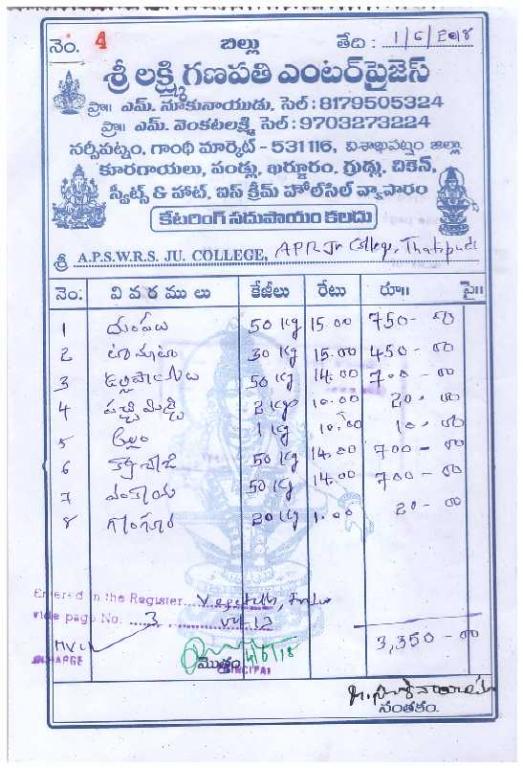 నెం. 4 బిల్లు తేది : 1/6/2018
శ్రీ లక్ష్మిగణపతి ఎంటర్‌ప్రైజెస్
ప్రొ॥ ఎమ్. నూకునాయుడు, సెల్ : 8179505324
ప్రొ॥ ఎమ్. వెంకటలక్ష్మి, సెల్ : 9703273224
నర్సీపట్నం, గాంధీ మార్కెట్ - 531116, విశాఖపట్నం జిల్లు
కూరగాయలు, పండ్లు, ఖర్జూరం, గ్రుడ్లు, చికెన్,
స్వీట్స్ & హాట్, ఐస్ క్రీమ్ హోల్‌సేల్ వ్యాపారం
కేటరింగ్ సదుపాయం కలదు
శ్రీ A.P.S.W.R.S. JU. COLLEGE, APR Jr College, Thatipudi
నెం. వివరములు కేజీలు రేటు రూ॥ పై॥
1 దుంపలు 50 Kg 15.00 750-00
2 టామాటా 30 Kg 15.00 450-00
3 ఉల్లిపాయలు 50 Kg 14.00 700-00
4 పచ్చిమిర్చి 2 Kg 10.00 20.00
5 అల్లం 1 Kg 10.00 10.00
6 50 Kg 14.00 700-00
7 వంకాయ 50 Kg 14.00 700-00
8 గోంగూర 20 Kg 1.00 20-00
Entered in the Register
vide page No. 3
3,350-00
మొత్తం
INCHARGE PRINCIPAL
సంతకం.